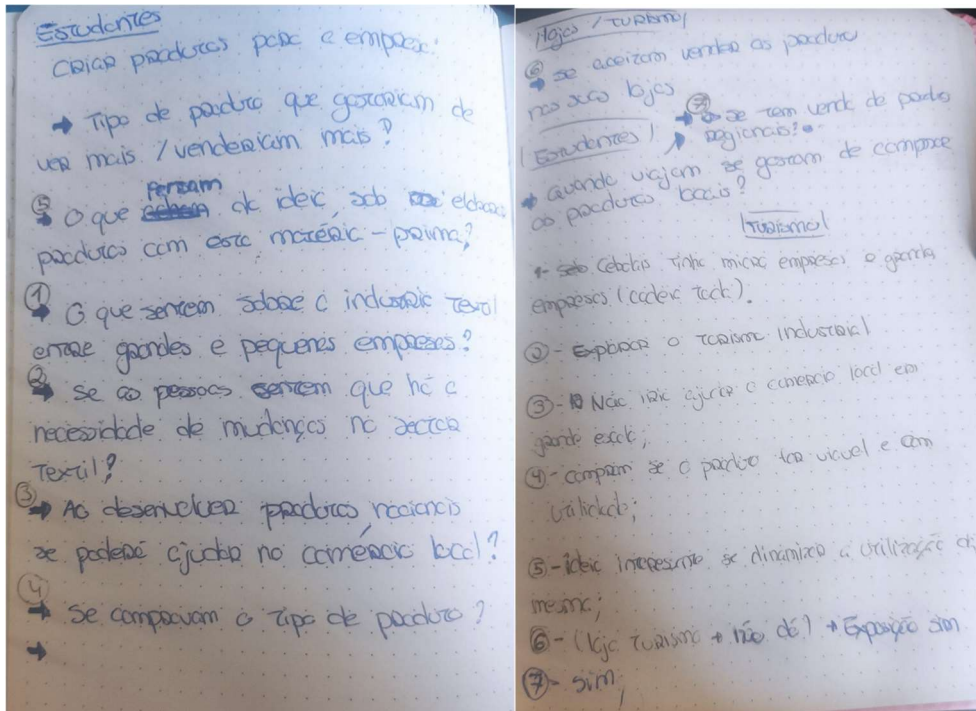 Estudantes
criar produtos para a empresa:
→ Tipo de produto que gostariam de
ver mais / venderiam mais?
⑤ Pensam
→ O que da ideia, sob elaborar
produtos com esta matéria-prima?
①
→ O que sentem sobre a industria textil
entre grandes e pequenas empresas?
②
→ Se as pessoas sentem que há a
necessidade de mudanças no sector
textil?
③
→ Ao desenvolver produtos nacionais
se poderá ajudar no comércio local?
④
→ Se compravam o tipo de produto?
→
/lojas / turismo/
⑥
→ se aceitam vender os produtos
nas suas lojas
⑦
→ se tem venda de produtos
regionais?
| Estudantes |
→ quando viajam se gostam de comprar
os produtos locais?
|Turismo|
1- tinha micro empresas e grandes
empresas
② - Explorar o turismo industrial
③ - Não iria ajudar o comercio local em
grande escala;
④ - compram se o produto for viavel e com
utilidade;
⑤ - ideia interessante se dinamizar a utilização da
mesma;
⑥ - (loja turismo → não dá) → Exposição sim
⑦ - sim;